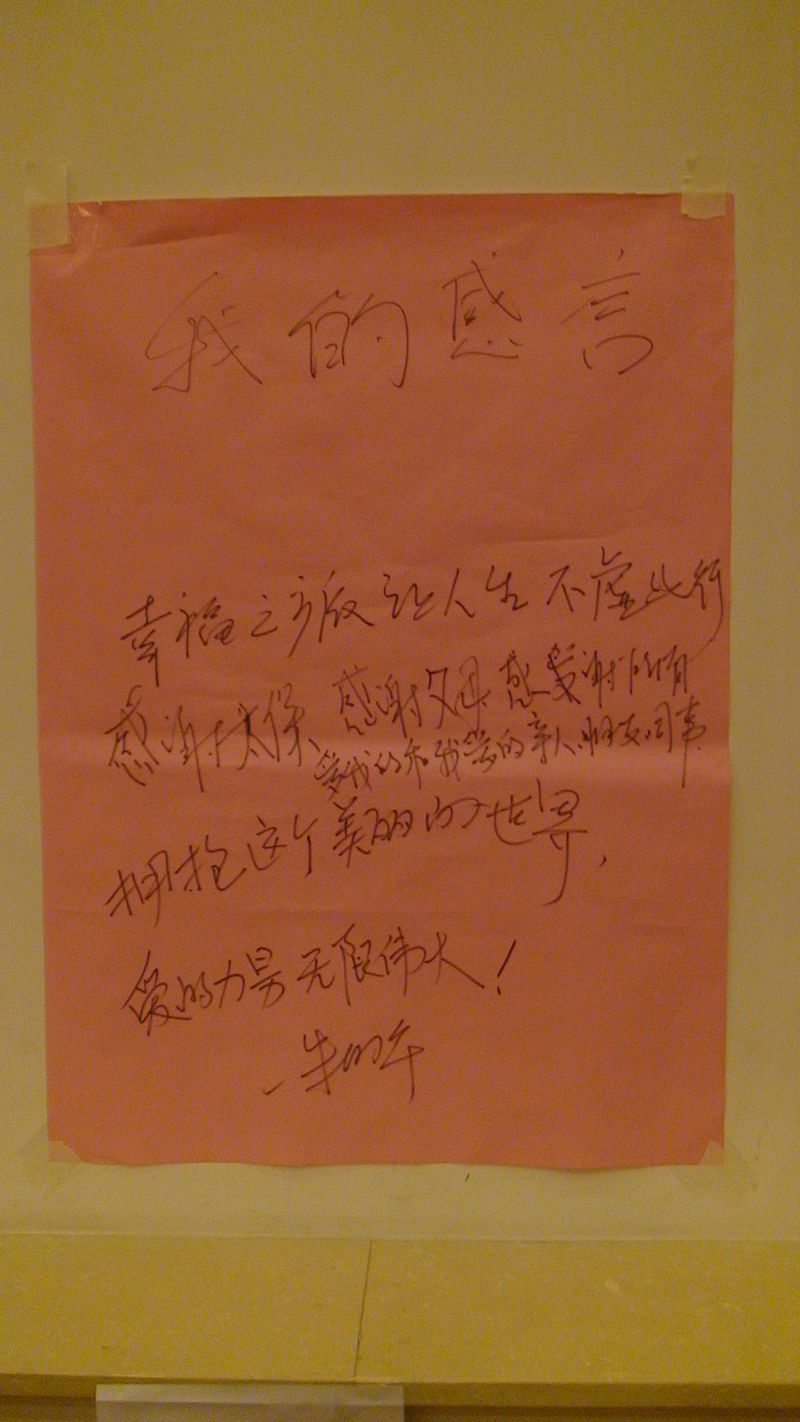 我的感言
幸福之旅让人生不虚此行
感谢太保、感谢父母感谢所有
爱我的和我爱的亲人、朋友、同事
拥抱这个美丽的世界,
爱的力量无限伟大!